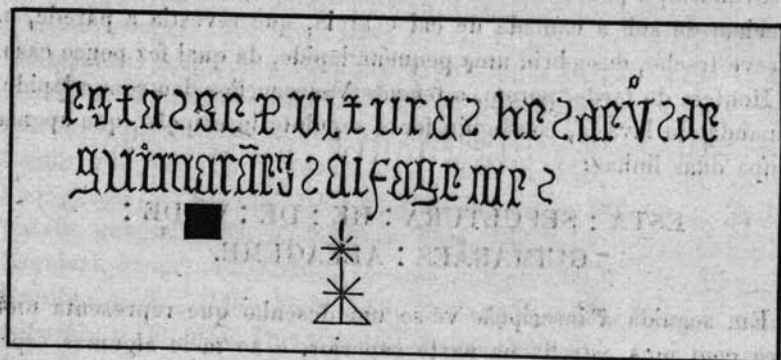 esta : sepultura : he : de vͦ : de
guimarães : alfageme :